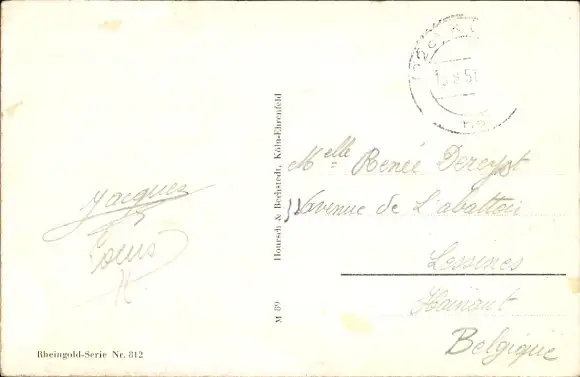 Jacques
Rheingold-Serie Nr. 812
M 89 Hoursch & Bechstedt, Köln-Ehrenfeld
Melle Renée
avenue de L'abattoir
Lessines
Hainaut
Belgique